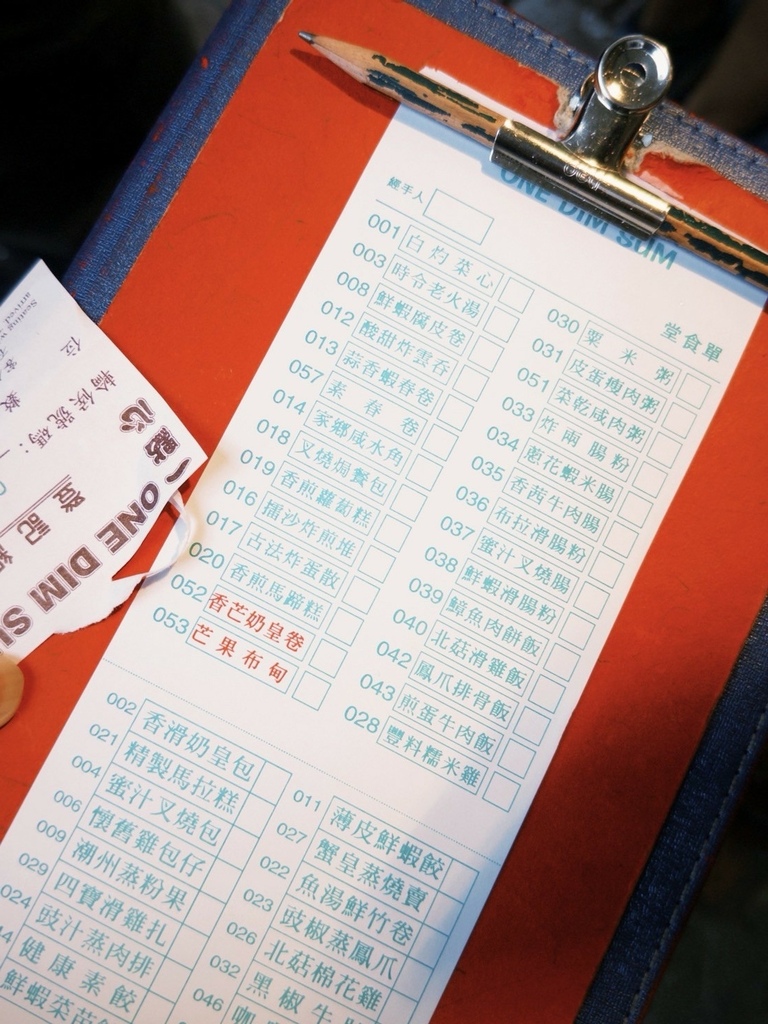 ONE DIM SUM
經手人
堂食單
001 白灼菜心
003 時令老火湯
008 鮮蝦腐皮卷
012 酸甜炸雲吞
013 蒜香蝦春卷
057 素春卷
014 家鄉咸水角
018 叉燒焗餐包
019 香煎蘿蔔糕
016 擂沙炸煎堆
017 古法炸蛋散
020 香煎馬蹄糕
052 香芒奶皇卷
053 芒果布甸
030 粟米粥
031 皮蛋瘦肉粥
051 菜乾咸肉粥
033 炸兩腸粉
034 蔥花蝦米腸
035 香茜牛肉腸
036 布拉滑腸粉
037 蜜汁叉燒腸
038 鮮蝦滑腸粉
039 鱆魚肉餅飯
040 北菇滑雞飯
042 鳳爪排骨飯
043 煎蛋牛肉飯
028 豐料糯米雞
002 香滑奶皇包
021 精製馬拉糕
004 蜜汁叉燒包
006 懷舊雞包仔
009 潮州蒸粉果
029 四寶滑雞扎
024 豉汁蒸肉排
健康素餃
鮮蝦菜苗
011 薄皮鮮蝦餃
027 蟹皇蒸燒賣
022 魚湯鮮竹卷
023 豉椒蒸鳳爪
026 北菇棉花雞
032 黑椒牛
046
一點心
ONE DIM SU
登記
輪候號碼：
位
數
Seating w
arrived